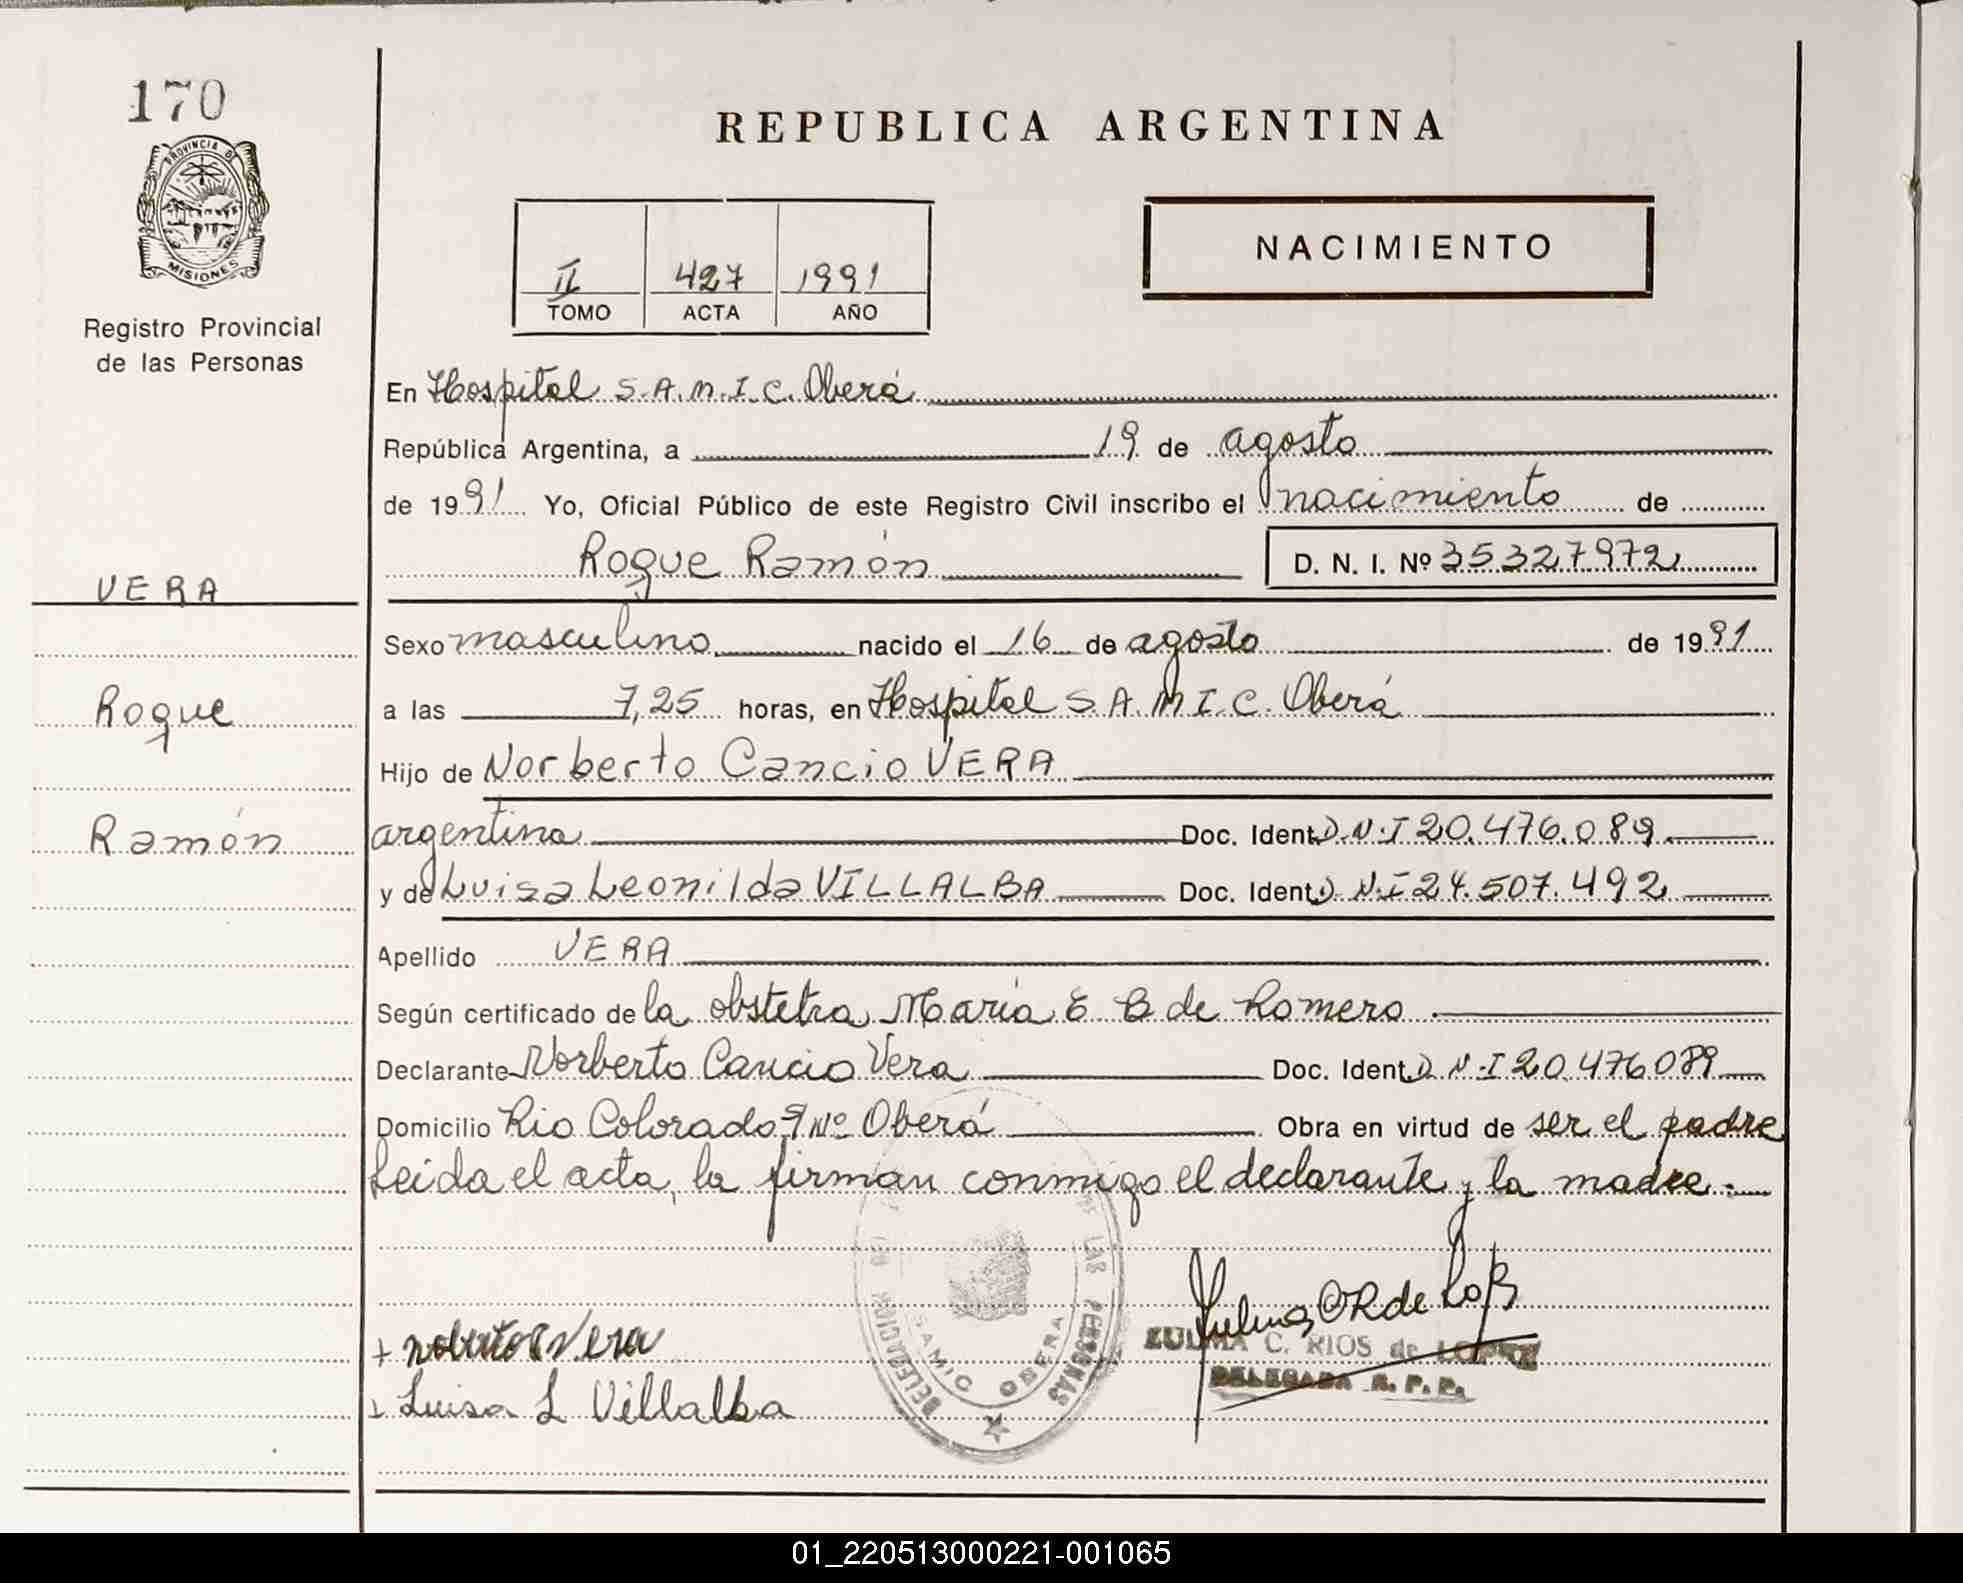 170
PROVINCIA DE
MISIONES
Registro Provincial
de las Personas
VERA
Roque
Ramón
REPUBLICA ARGENTINA
II 427 1991
TOMO ACTA AÑO
NACIMIENTO
En Hospital S.A.M.I.C. Oberá
República Argentina, a 19 de agosto
de 1991 Yo, Oficial Público de este Registro Civil inscribo el nacimiento de
Roque Ramón D. N. I. Nº 35327972
Sexo masculino nacido el 16 de agosto de 1991
a las 7,25 horas, en Hospital S.A.M.I.C. Oberá
Hijo de Norberto Cancio VERA
argentino Doc. Ident. D.N.I 20.476.089
y de Luisa Leonilda VILLALBA Doc. Ident. D.N.I 24.507.492
Apellido VERA
Según certificado de la obstetra María E B de Romero
Declarante Norberto Cancio Vera Doc. Ident. D.N.I 20.476089
Domicilio Rio Colorado Nº Oberá Obra en virtud de ser el padre
Leida el acta, la firman conmigo el declarante y la madre.-
Norberto C Vera
Luisa L Villalba
DELEGACION
DE LAS PERSONAS
SAMIC OBERA
ZULMA C. RIOS de LOPEZ
DELEGADA R. P. P.
01_220513000221-001065